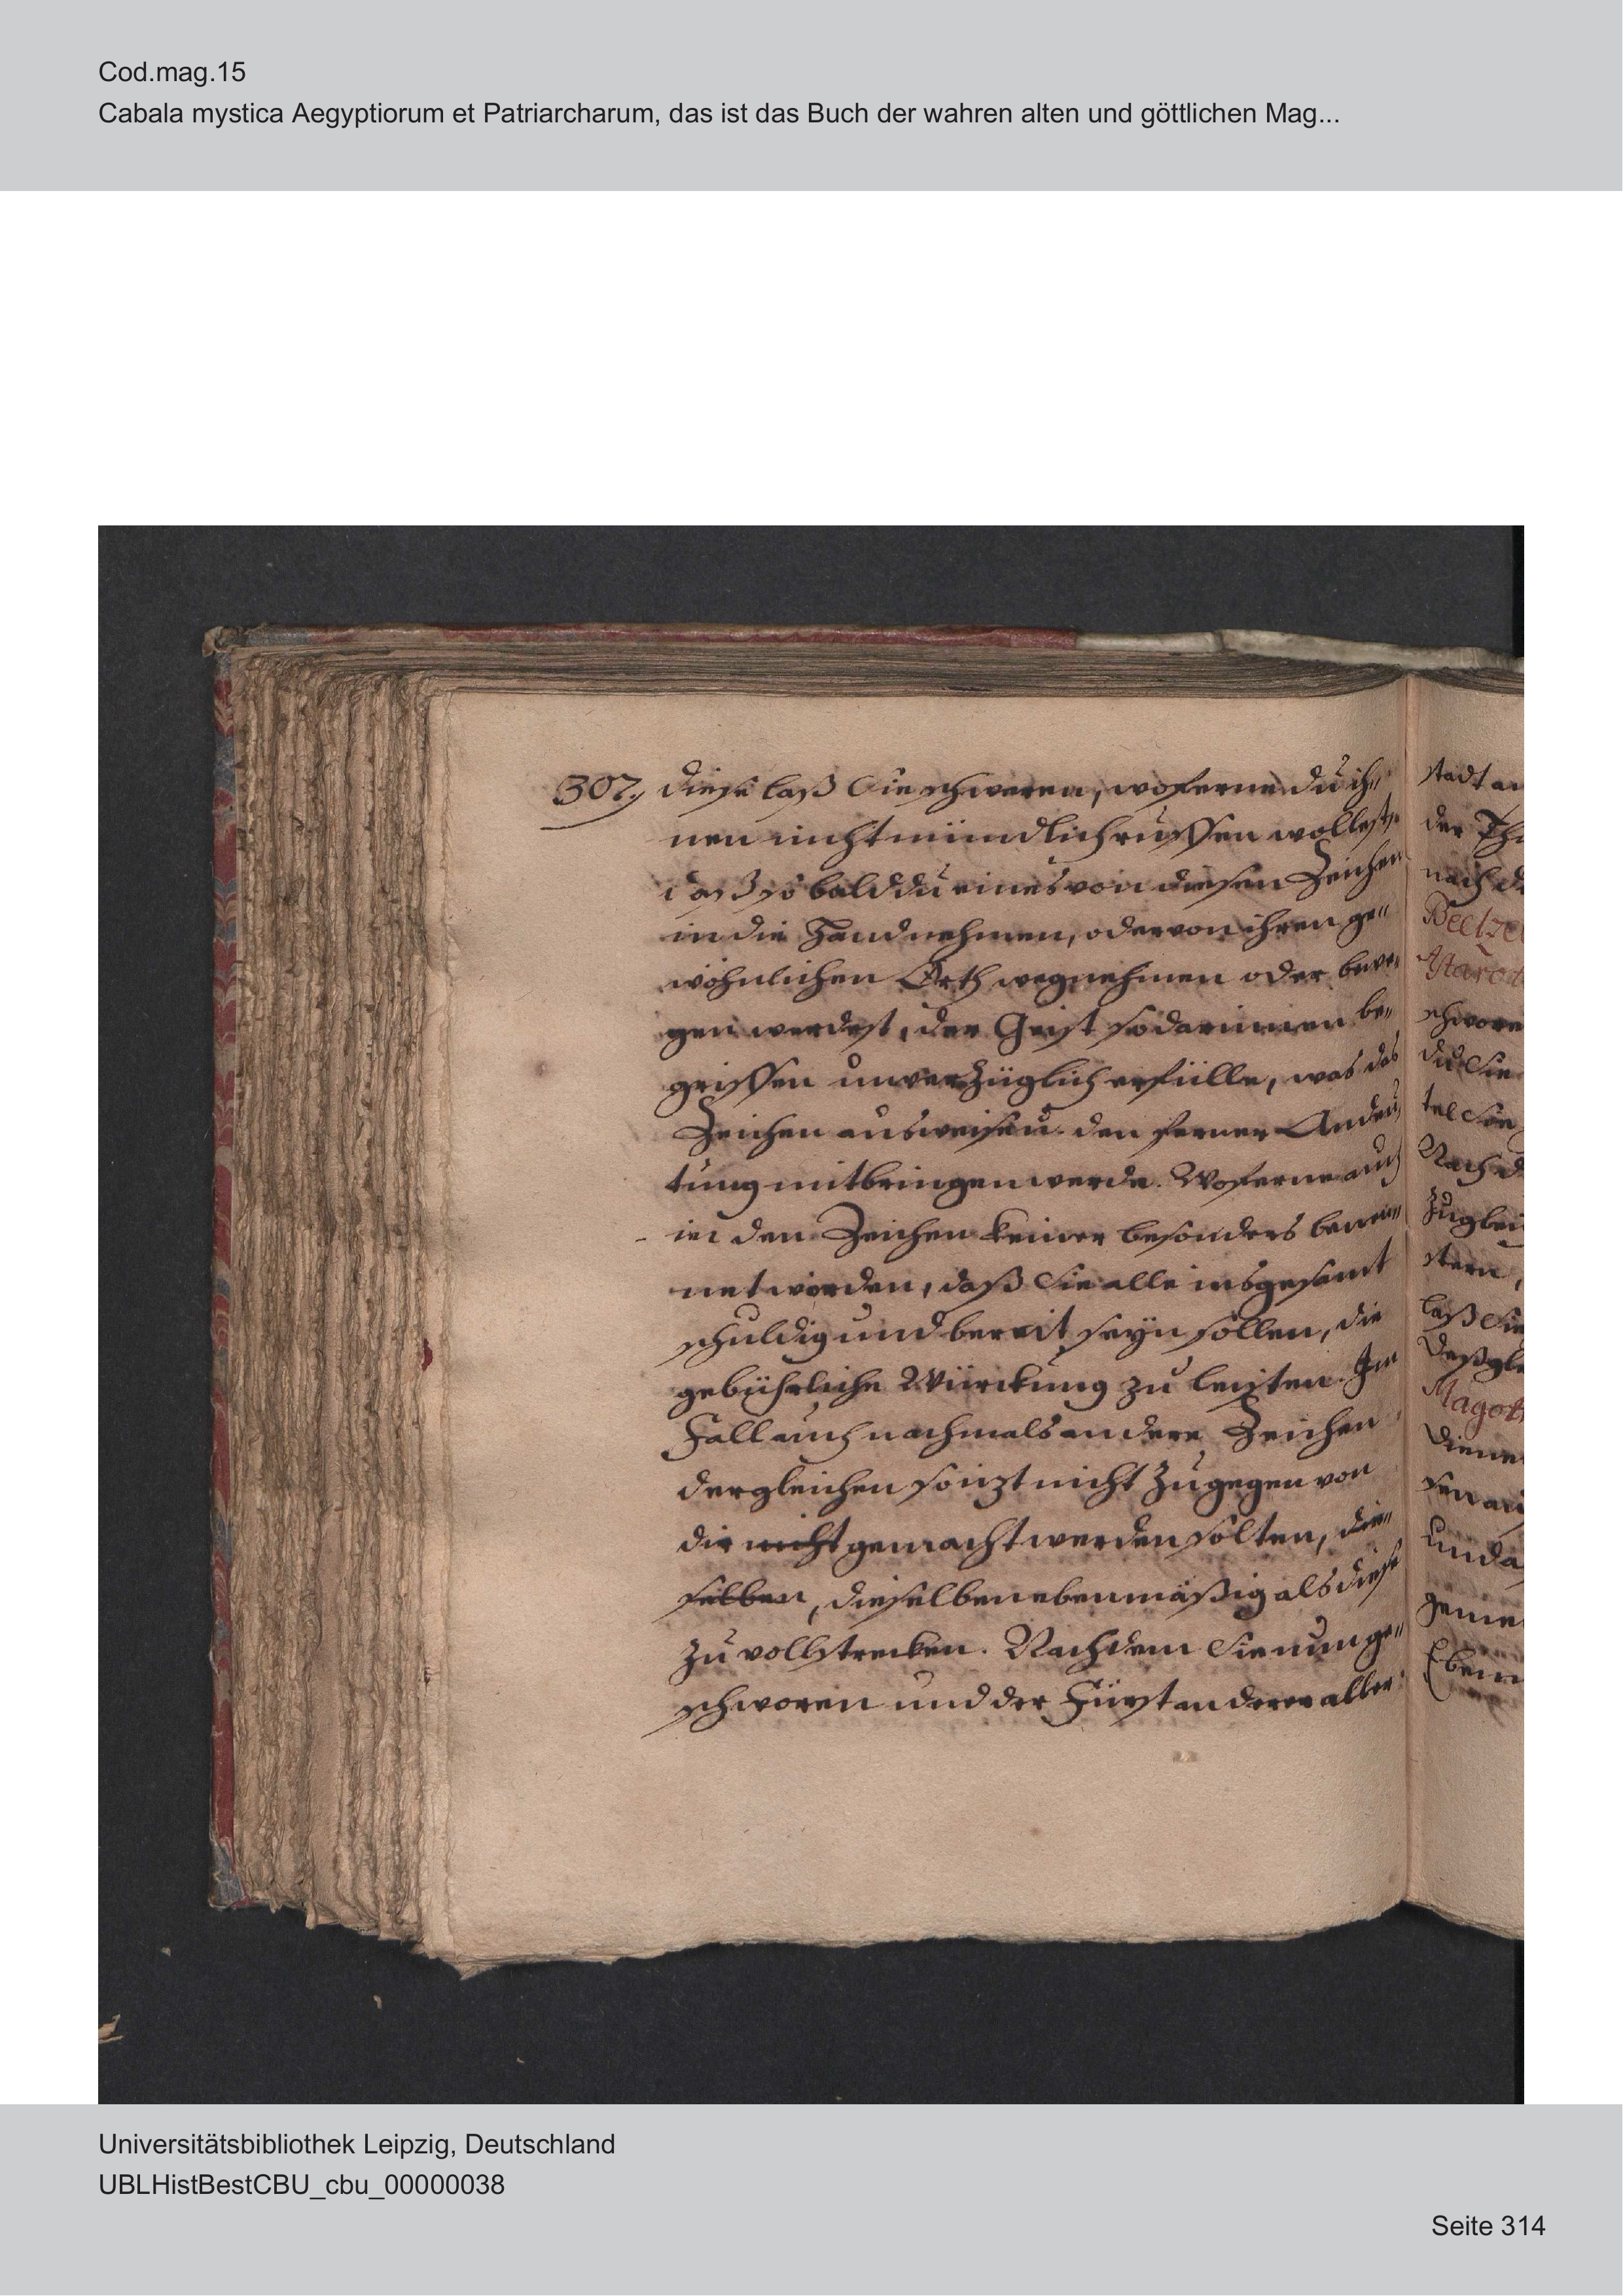 Cod.mag.15
Cabala mystica Aegyptiorum et Patriarcharum, das ist das Buch der wahren alten und göttlichen Mag...
307. diese laß Sie schweren, woferne du ih„
nen nicht mündlich ruffen wollest,
daß so bald du eines von diesen Zeichen
in die Hand nehmen, oder von ihren ge„
wöhnlichen Orth wegnehmen oder bewe„
gen werdest, der Geist so darinnen be„
griffen unverzüglich erfülle, was das
Zeichen ausweisen den ferner Andeu„
tung mitbringen werde. Woferne auch
in den Zeichen keiner besonders benen„
net worden, daß Sie alle insgesamt
schuldig und bereit seyn sollen, die
gebührliche Würckung zu leisten. Im
Fall auch nachmals andere Zeichen
dergleichen sonzt nicht zugegen von
dir nicht gemacht werden solten, die„
selben, dieselben ebenmäßig als diese
zu vollstrecken. Nachdem Sie nun ge„
schworen und der Fürst anderer aller
stadt an
der
nach
Beelze
Astarot
schwore
du Sie
tel Sie
Nach d
zuglei
stern,
laß Sie
deßgle
Magot
diene
sen
und
geme
Eben
Universitätsbibliothek Leipzig, Deutschland
UBLHistBestCBU_cbu_00000038
Seite 314